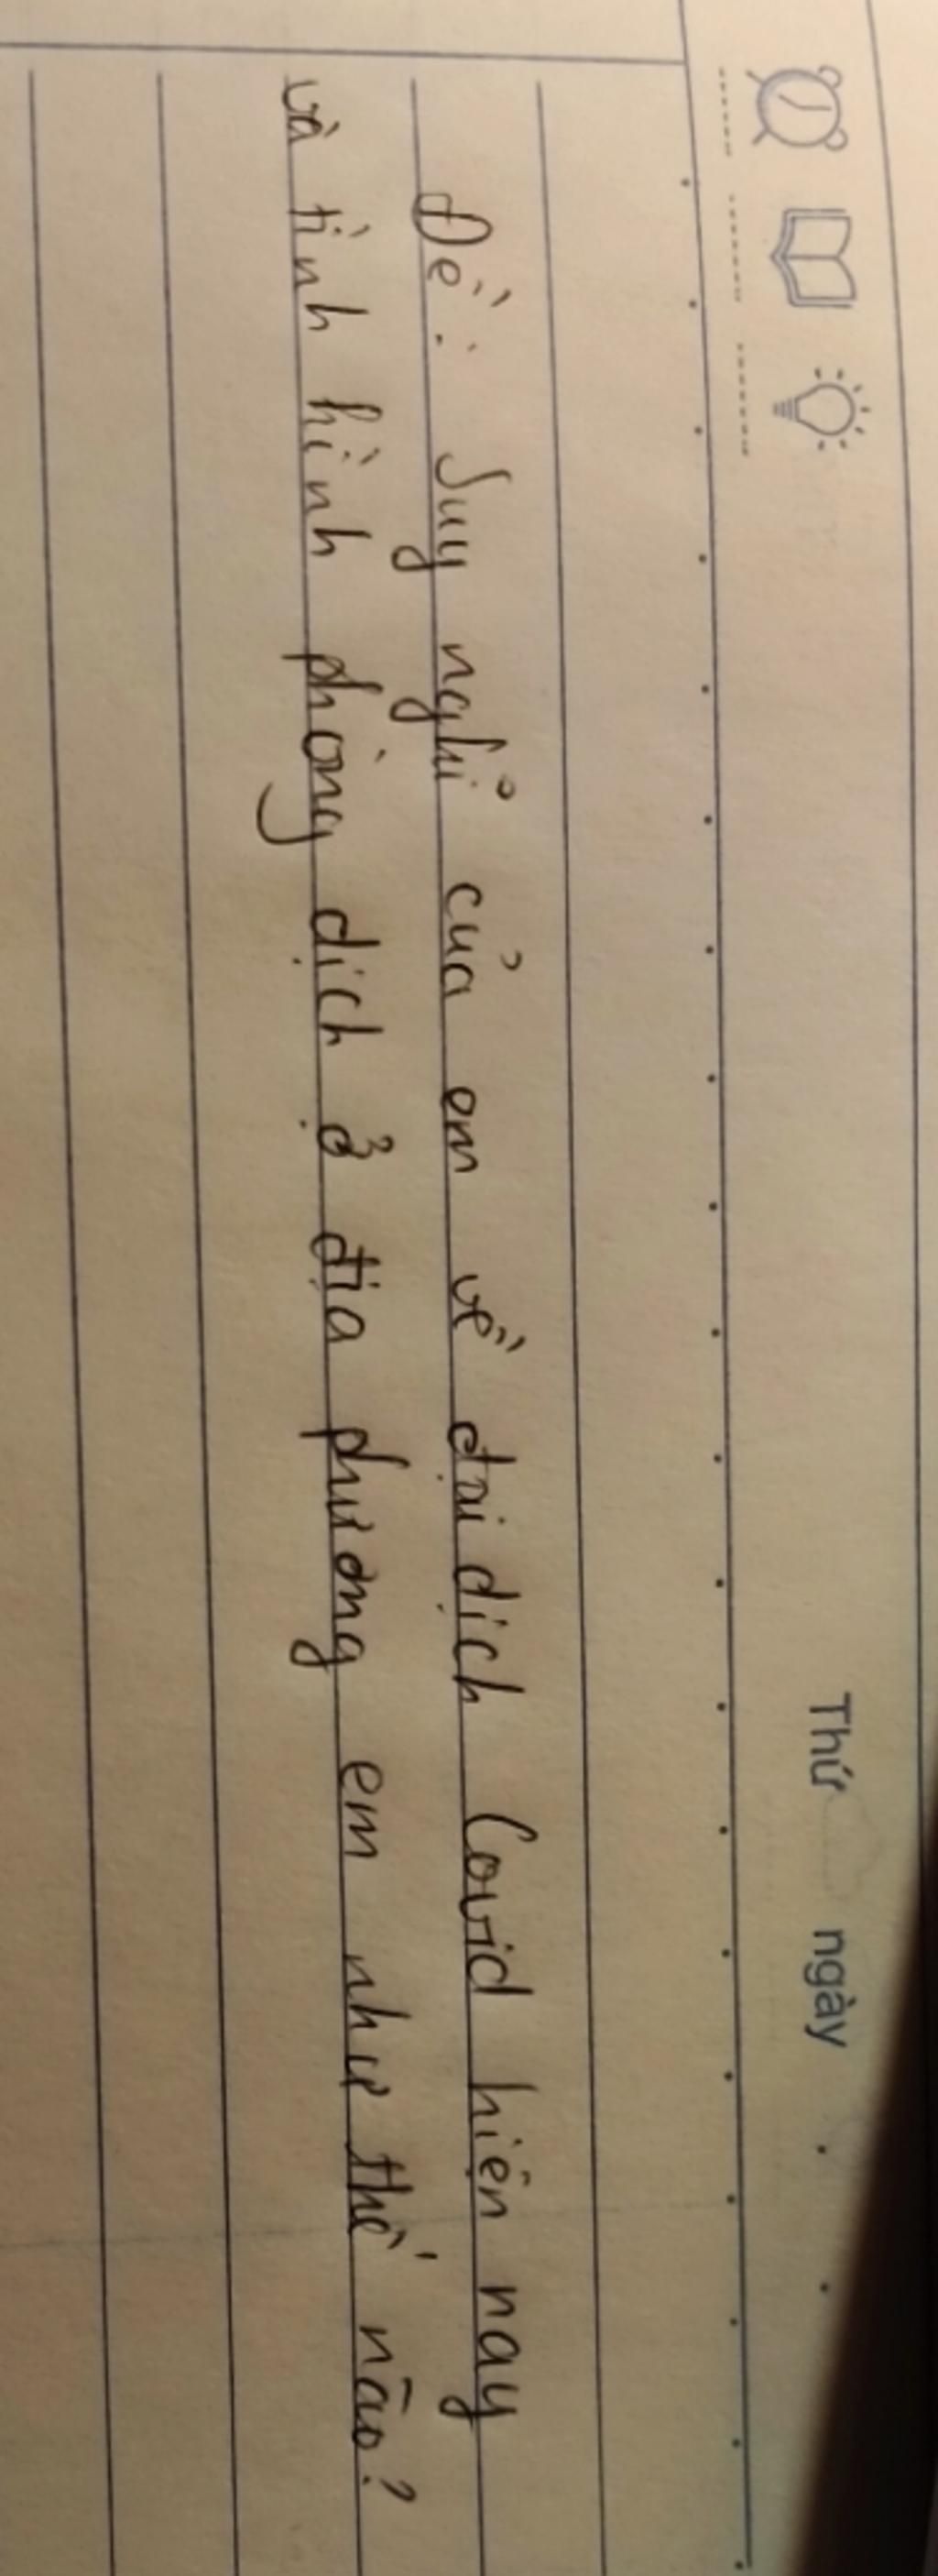 Thứ ngày . .
Đề: Suy nghỉ của em về đại dịch Covid hiện nay
và tình hình phòng dịch ở địa phương em như thế nào?